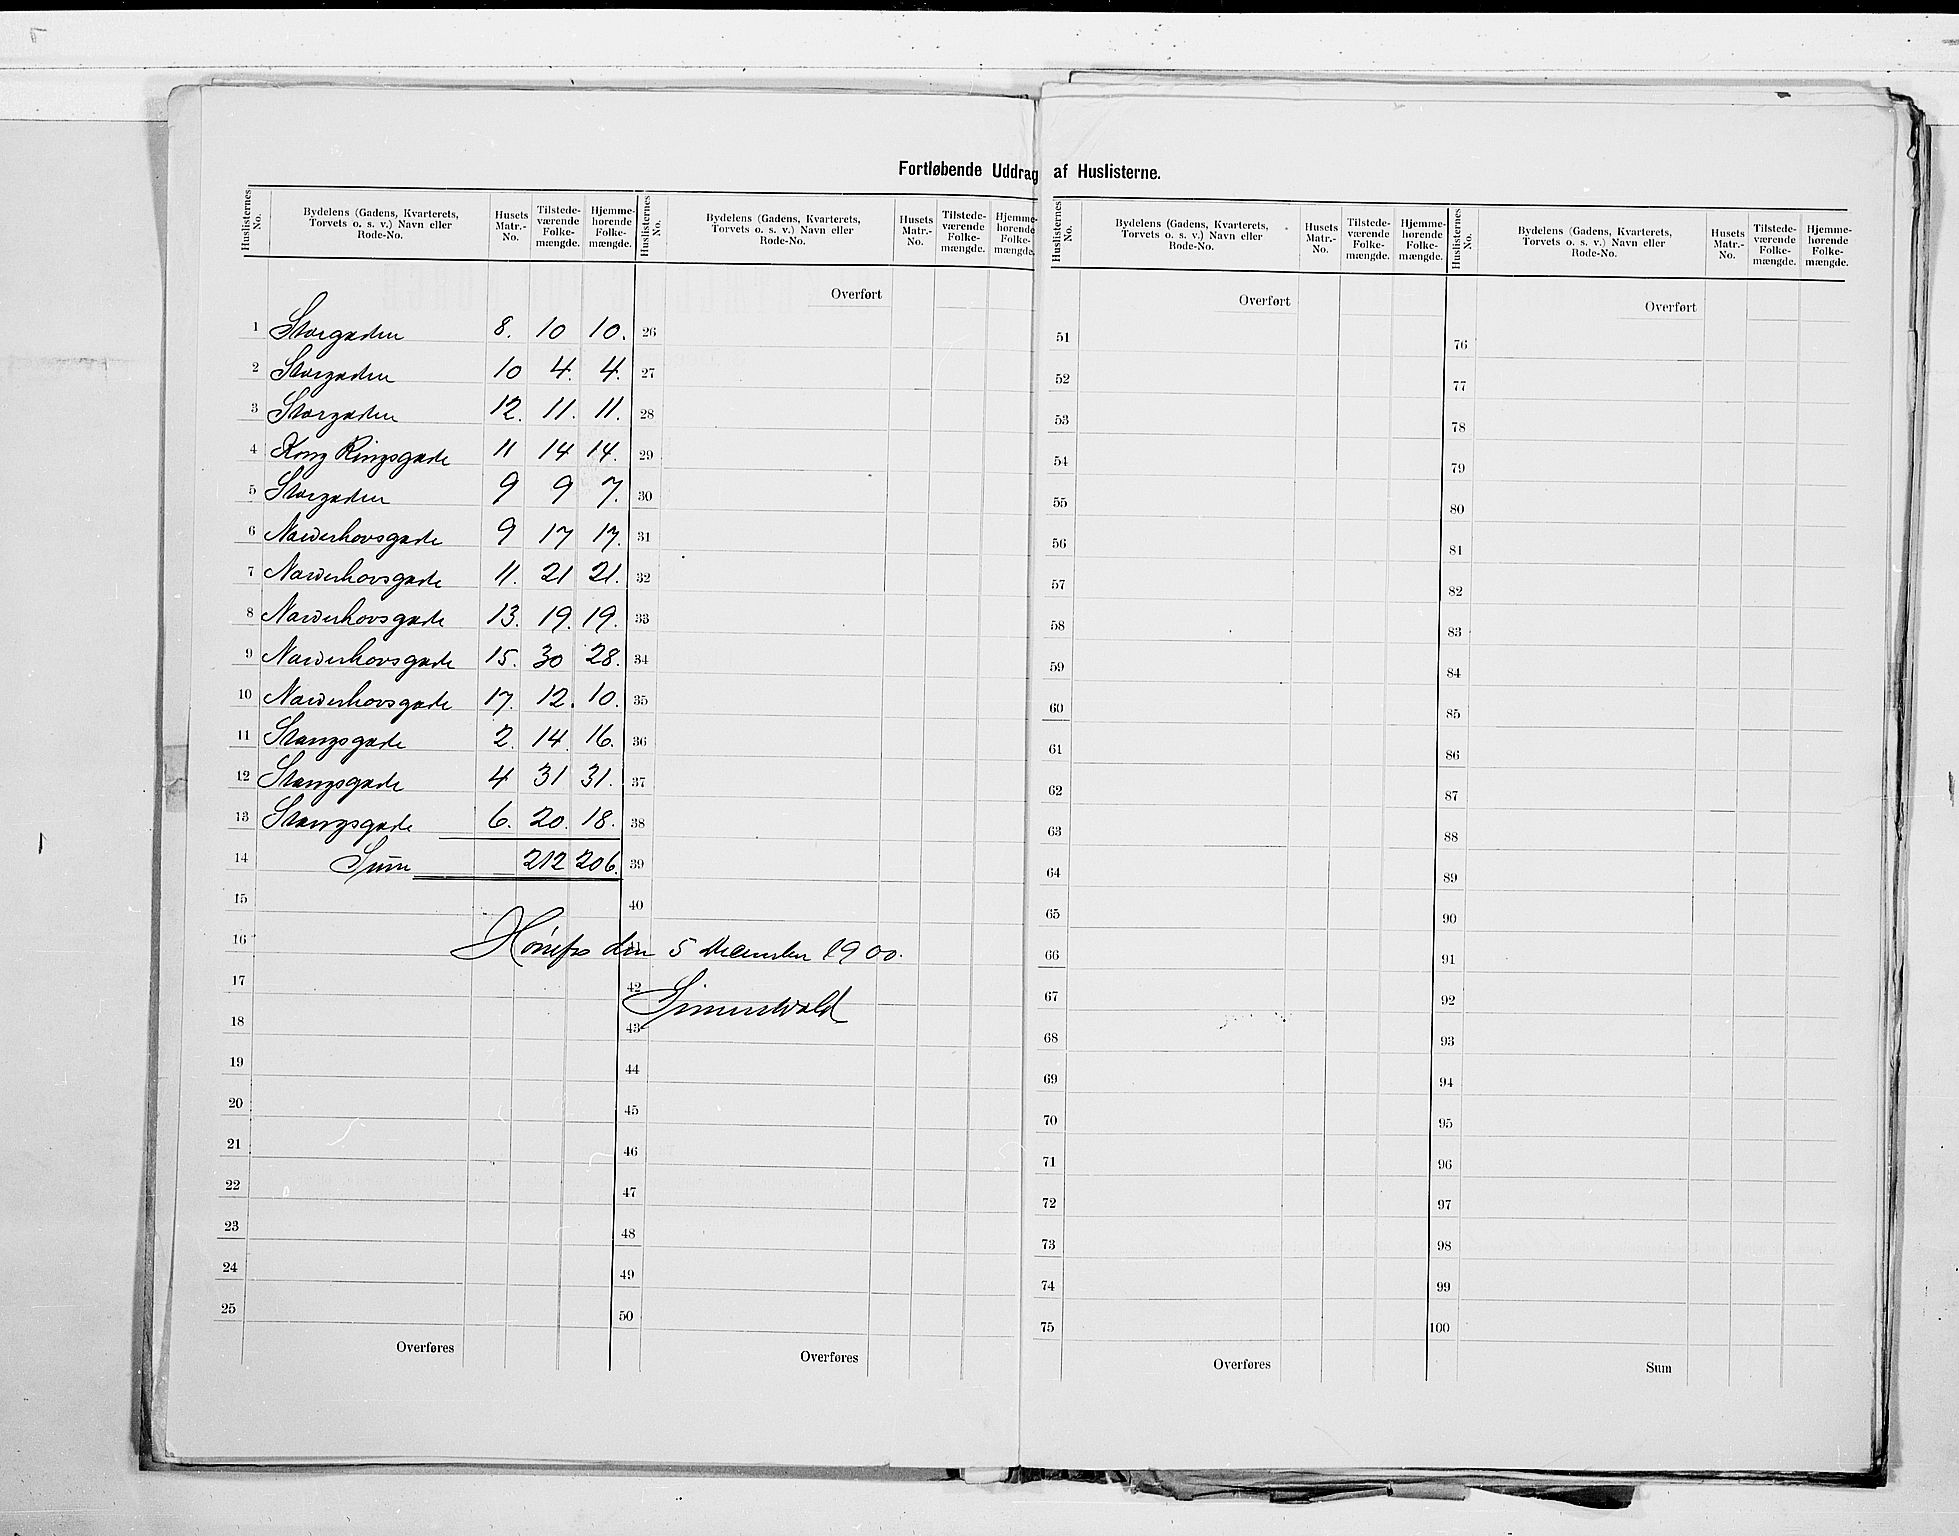 Fortløbende Uddrag af Huslisterne.
Huslisternes No. | Bydelens (Gadens, Kvarterets, Torvets o. s. v.) Navn eller Rode-No. | Husets Matr.-No. | Tilstedeværende Folkemængde. | Hjemmehørende Folkemængde.
Huslisternes No. | Bydelens (Gadens, Kvarterets, Torvets o. s. v.) Navn eller Rode-No. | Husets Matr.-No. | Tilstedeværende Folkemængde. | Hjemmehørende Folkemængde.
Huslisternes No. | Bydelens (Gadens, Kvarterets, Torvets o. s. v.) Navn eller Rode-No. | Husets Matr.-No. | Tilstedeværende Folkemængde. | Hjemmehørende Folkemængde.
Huslisternes No. | Bydelens (Gadens, Kvarterets, Torvets o. s. v.) Navn eller Rode-No. | Husets Matr.-No. | Tilstedeværende Folkemængde. | Hjemmehørende Folkemængde.
1 Storgaden 8. 10 10.
2 Storgaden 10 4. 4.
3 Storgaden 12. 11. 11.
4 Kong Ringsgade 11 14 14.
5 Storgaden 9 9 7.
6 Norderhovsgade 9 17 17.
7 Norderhovsgade 11. 21 21.
8 Norderhovsgade 13. 19. 19.
9 Norderhovsgade 15. 30 28.
10 Norderhovsgade 17. 12. 10.
11 Stangsgade 2. 14. 16.
12 Stangsgade 4 31 31.
13 Stangsgade 6. 20. 18.
14 Sum 212 206.
15
16
17
18
19
20
21
22
23
24
25
Overføres
Overført
26
27
28
29
30
31
32
33
34
35
36
37
38
39
40
Hønefos den 5 December 1900.
42
43
44
45
46
47
48
49
50
Overføres
Overført
51
52
53
54
55
56
57
58
59
60
61
62
63
64
65
66
67
68
69
70
71
72
73
74
75
Overføres
Overført
76
77
78
79
80
81
82
83
84
85
86
87
88
89
90
91
92
93
94
95
96
97
98
99
100
Sum